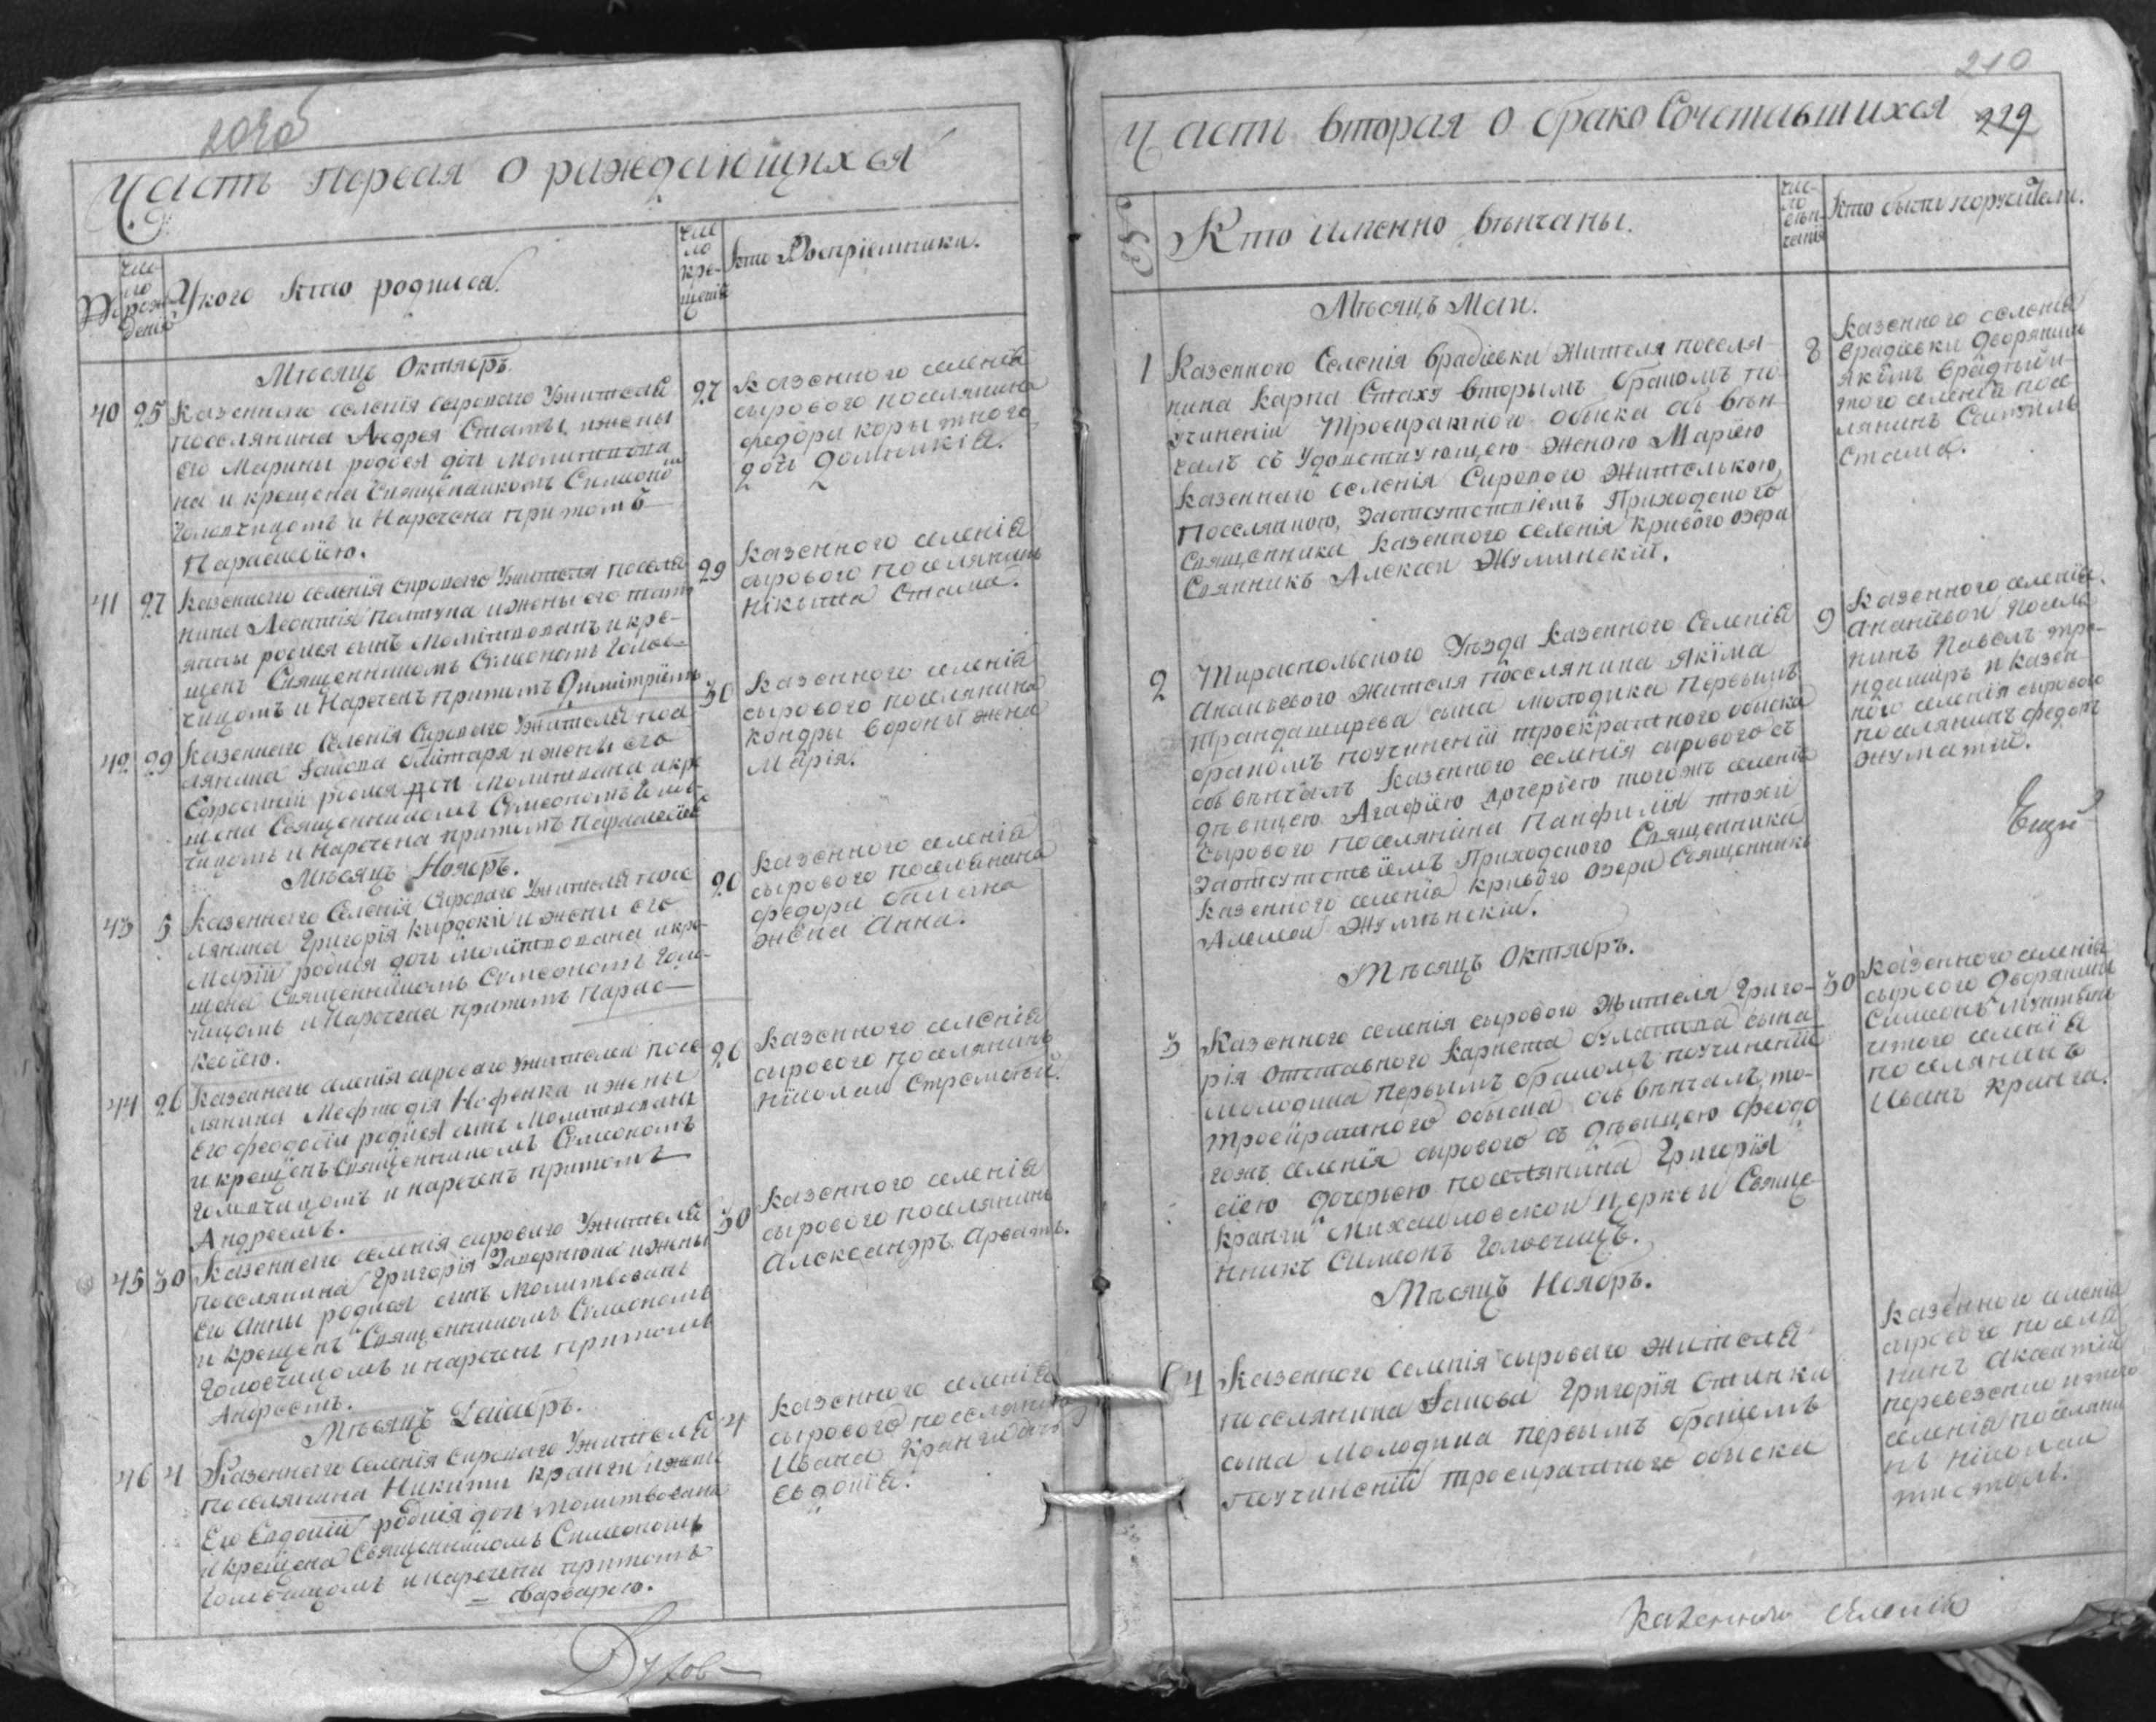 209об
Часть первая о раждающихся
№
чис-
ло
рож-
денія
У кого кто родился.
чис
ло
кре-
щенія
кто Воспріемники.
Мѣсяцъ Октябръ.
40 25 Казенного селенія сыроваго Жителя
поселянина Андрея Статы, и жены
его Марины родися дочь молитвова
на и крещена Священникомъ Симеоно
Головчицомъ и Наречена при томъ
Параскевіею.
27 казенного селенія
сырового поселянина
федора корытного
дочь Домникія.
41 27 Казенного селенія сыроваго Жителя поселя
нина Леонтія и жены его тать
яны родися сынъ молитвованъ и кре-
щенъ Священникомъ Симеономъ Голов-
чицомъ и Нареченъ при томъ Димитріемъ
29 казенного селенія
сырового поселянинъ
Нікита Стама.
42 29 Казенного Селенія Сыроваго Жителя посе
лянина Іакова и жены его
Ефросиніи родися дочь молитвована и кре
щена Священникомъ Симеономъ Голов-
чицомъ и Наречена при томъ Параскевіею
30 казенного селенія
сырового поселянина
кондры вороны жена
Марія.
Мѣсяцъ Ноябръ.
43 5 Казенного Селенія Сыроваго Жителя посе
лянина Григорія и жены его
Маріи родися дочь молитвована и кре-
щена Священникомъ Симеономъ Голов-
чицомъ и Наречена при томъ Парас-
кевіею.
20 казенного селенія
сырового поселянина
федора
жена Анна.
44 26 Казенного селенія сыроваго жителя посе
лянина Мефтодія и жены
Его феодосіи родися сынъ Молитвованъ
и крещенъ Священникомъ Симеономъ
Головчицомъ и нареченъ при томъ
Андреемъ.
26 казенного селенія
сырового поселянинъ
Ніколай
45 30 Казенного селенія сыроваго Жителя
поселянина Григорія и жены
Его Анны родися сынъ Молитвованъ
и крещенъ Священникомъ Симеономъ
Головчицомъ и нареченъ при томъ
30 казенного селенія
сырового поселянинъ
Александръ Арватъ.
Мѣсяцъ
46 4 Казенного селенія сыроваго Жителя
поселянина Никиты Кранги и жены
Его Евдокіи родися дочь молитвована
и крещена Священникомъ Симеономъ
Головчицомъ и наречена при томъ
Варварою.
4 казенного селенія
сырового поселянина
Ивана Кранги
Евдокія.
210
229
Часть вторая о бракосочетавшихся
Кто именно вѣнчаны.
чис-
ло
вѣн-
чанія
Кто были поручители.
Мѣсяцъ Маи.
1 Казенного Селенія Врадіевки Жителя поселя-
нина Карпа Стаху вторымъ бракомъ по
учиненіи Троекратного обыска обвѣн-
чалъ съ Удовствующею женою Маріею
казенного селенія Сырового Жителькою,
Поселянкою, За отсутствіемъ Приходского
Священника казенного селенія кривого озера
Свянникъ Алексеи Жуминскій.
8 Казенного селенія
Врадіевки дворянинъ
Якимъ
того селенія посе
лянинъ
Стама.
2 Тираспольского Уѣзда казенного Селенія
Ананьевого Жителя Поселянина Якіма
Трандашірева сына Молодика Первымъ
бракомъ по учиненіи троекратного обыска
обвѣнчалъ казенного селенія сырового съ
дѣвицею Агафіею дочеріею тогожъ селенія
Сырового поселянина Панфилія
За отсутствіемъ Приходского Священника
Казенного селенія кривого Озера Священникъ
Алексеи Жуминскій.
9 Казенного селенія
Ананіевои поселя
нинъ Павелъ тра-
ндашіръ и казен
ного селенія сырового
поселянинъ федотъ
Мѣсяцъ Октябръ.
3 Казенного селенія сырового Жителя Григо-
рія отставного Карнета Булатова сына
Молодика первымъ бракомъ по учиненіи
троекратного обыска обвѣнчалъ то-
гожъ селенія сырового съ дѣвицею феодо
сіею дочерью поселянина Григорія
Кранги Михаиловской церкви Свяще-
нникъ Симеонъ Головчицъ.
30 Казенного селенія
сырового Дворянинъ
Симеонъ
и того селенія
поселянинъ
Иванъ Кранга.
Мѣсяцъ Ноябръ.
4 Казенного селенія сыроваго жителя
поселянина Іакова Григорія
сына Молодика первымъ бракомъ
по учиненіи троекратного обыска
казенного селенія
сырового поселя
нинъ Аксентій
и того
селенія поселяни
нъ Ніколаи
казенного селенія